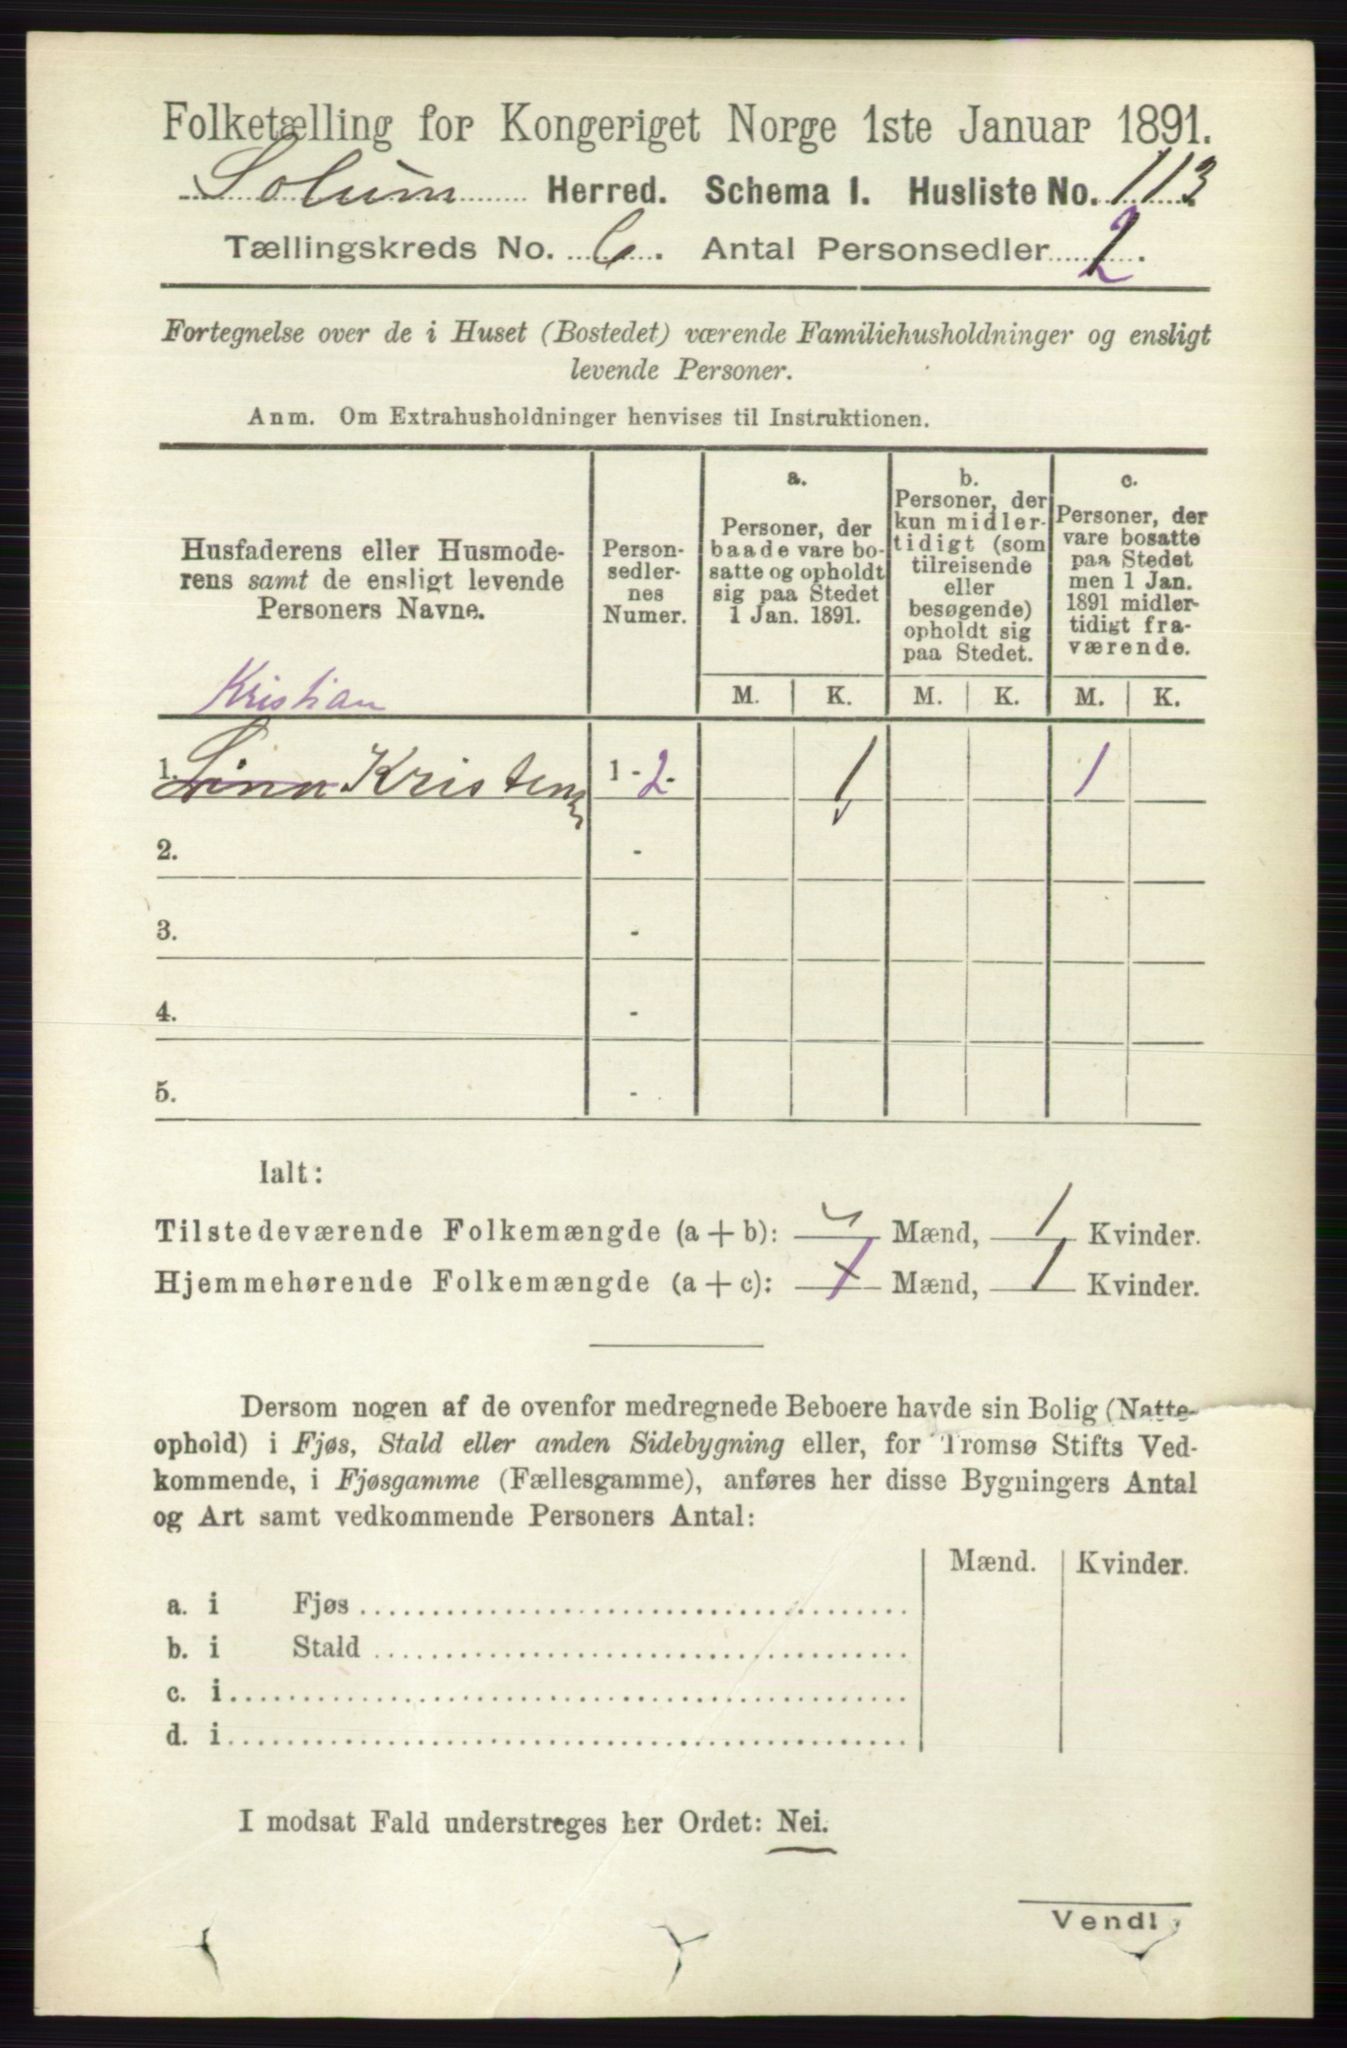 Folketælling for Kongeriget Norge 1ste Januar 1891.
Solum Herred. Schema 1. Husliste No. 113
Tællingskreds No. 6. Antal Personsedler 2.
Fortegnelse over de i Huset (Bostedet) værende Familiehusholdninger og ensligt
levende Personer.
Anm. Om Extrahusholdninger henvises til Instruktionen.
Husfaderens eller Husmode-
rens samt de ensligt levende
Personers Navne.
Person-
sedler-
nes
Numer.
a.
Personer, der
baade vare bo-
satte og opholdt
sig paa Stedet
1 Jan. 1891.
b.
Personer, der
kun midler-
tidigt (som
tilreisende
eller
besøgende)
opholdt sig
paa Stedet.
c.
Personer, der
vare bosatte
paa Stedet
men 1 Jan.
1891 midler-
tidigt fra-
værende.
M. K. M. K. M. K.
Kristian
1. Lina Kristens 1 - 2 - 1 1
2. -
3. -
4. -
5. -
Ialt:
Tilstedeværende Folkemængde (a + b): Mænd, 1 Kvinder.
Hjemmehørende Folkemængde (a + c): 1 Mænd, 1 Kvinder.
Dersom nogen af de ovenfor medregnede Beboere havde sin Bolig (Natte-
ophold) i Fjøs, Stald eller anden Sidebygning eller, for Tromsø Stifts Ved-
kommende, i Fjøsgamme (Fællesgamme), anføres her disse Bygningers Antal
og Art samt vedkommende Personers Antal:
Mænd. Kvinder.
a. i Fjøs
b. i Stald
c. i
d. i
I modsat Fald understreges her Ordet: Nei.
Vend!